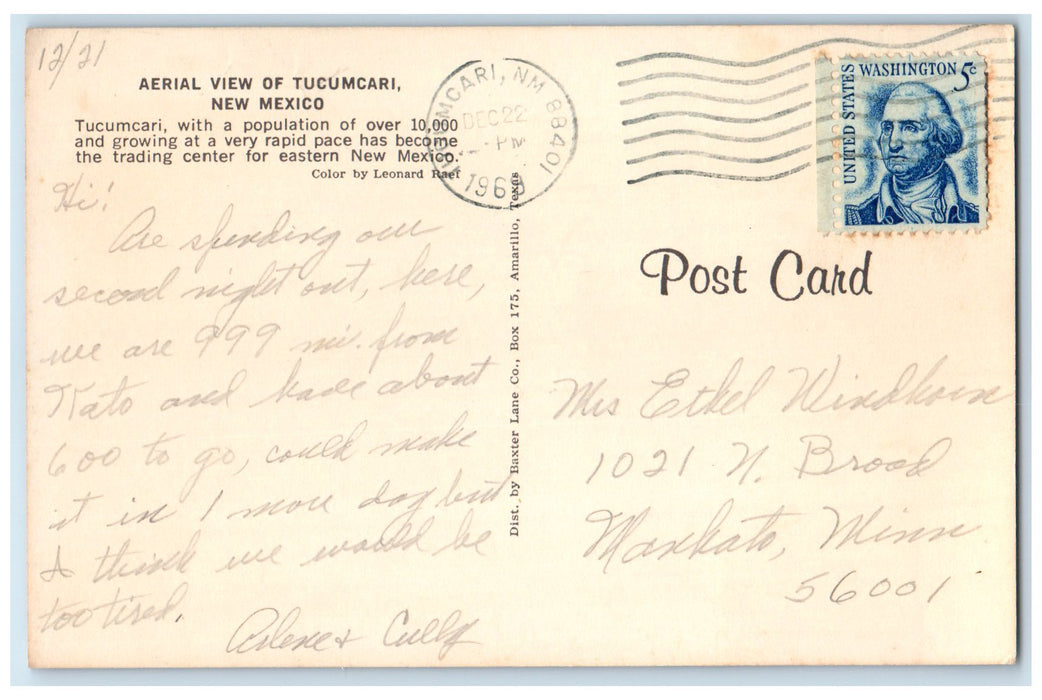 12/21
AERIAL VIEW OF TUCUMCARI,
NEW MEXICO
Tucumcari, with a population of over 10,000
and growing at a very rapid pace has become
the trading center for eastern New Mexico.
Color by Leonard Raef
TUCUMCARI, NM 88401
DEC 22
PM
1969
UNITED STATES
WASHINGTON 5c
Hi!
Are spending our
second night out, here,
we are 999 mi. from
Kato and have about
600 to go, could make
it in 1 more day but
I think we would be
too tired.
Arlene & Cully
Dist. by Baxter Lane Co., Box 175, Amarillo, Texas
Post Card
Mrs Ethel Windhorn
1021 N. Broad
Mankato, Minn
56001